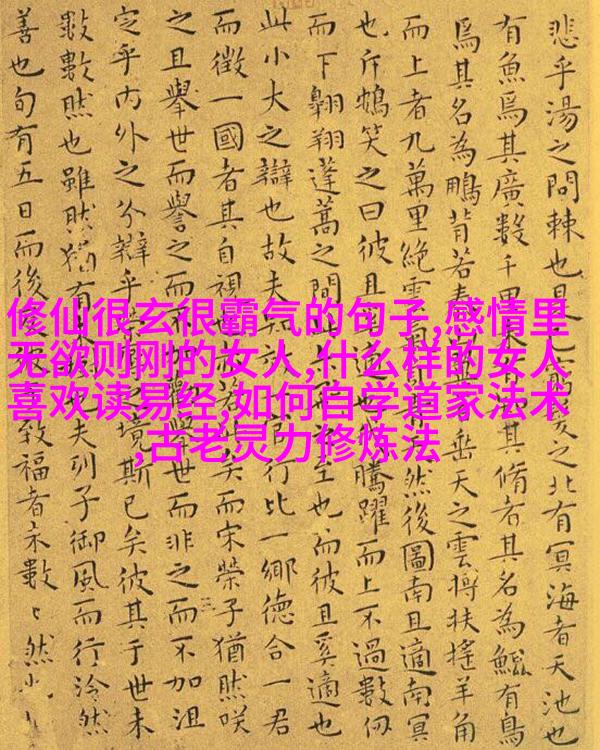 修仙很玄很霸气的句子,感情里
无欲则刚的女人,什么样的女人
喜欢读易经,如何自学道家法术
,古老灵力修炼法
悲乎湯之問棘也是之北有冥海者天池也
有魚焉其廣數千里其脩者其名為鯤有鳥
焉其名為鵬背若垂天之雲摶扶搖羊角
而上者九萬里絕雲然後圖南且適南冥
也斥鴳笑之曰彼且騰躍而上不過數仞
而下翱翔蓬蒿之間至也而彼且奚適也
此小大之辯也故夫行比一鄉德合一君
而徵一國者其自視矣而宋榮子猶然咲
之且舉世而譽之而不加舉世而非之而不加沮
定乎内外之分辯乎之境斯已矣彼其于世未
數數然也雖然猶有也夫列子御風而行泠然
善也旬有五日而後致福者未數〻然也